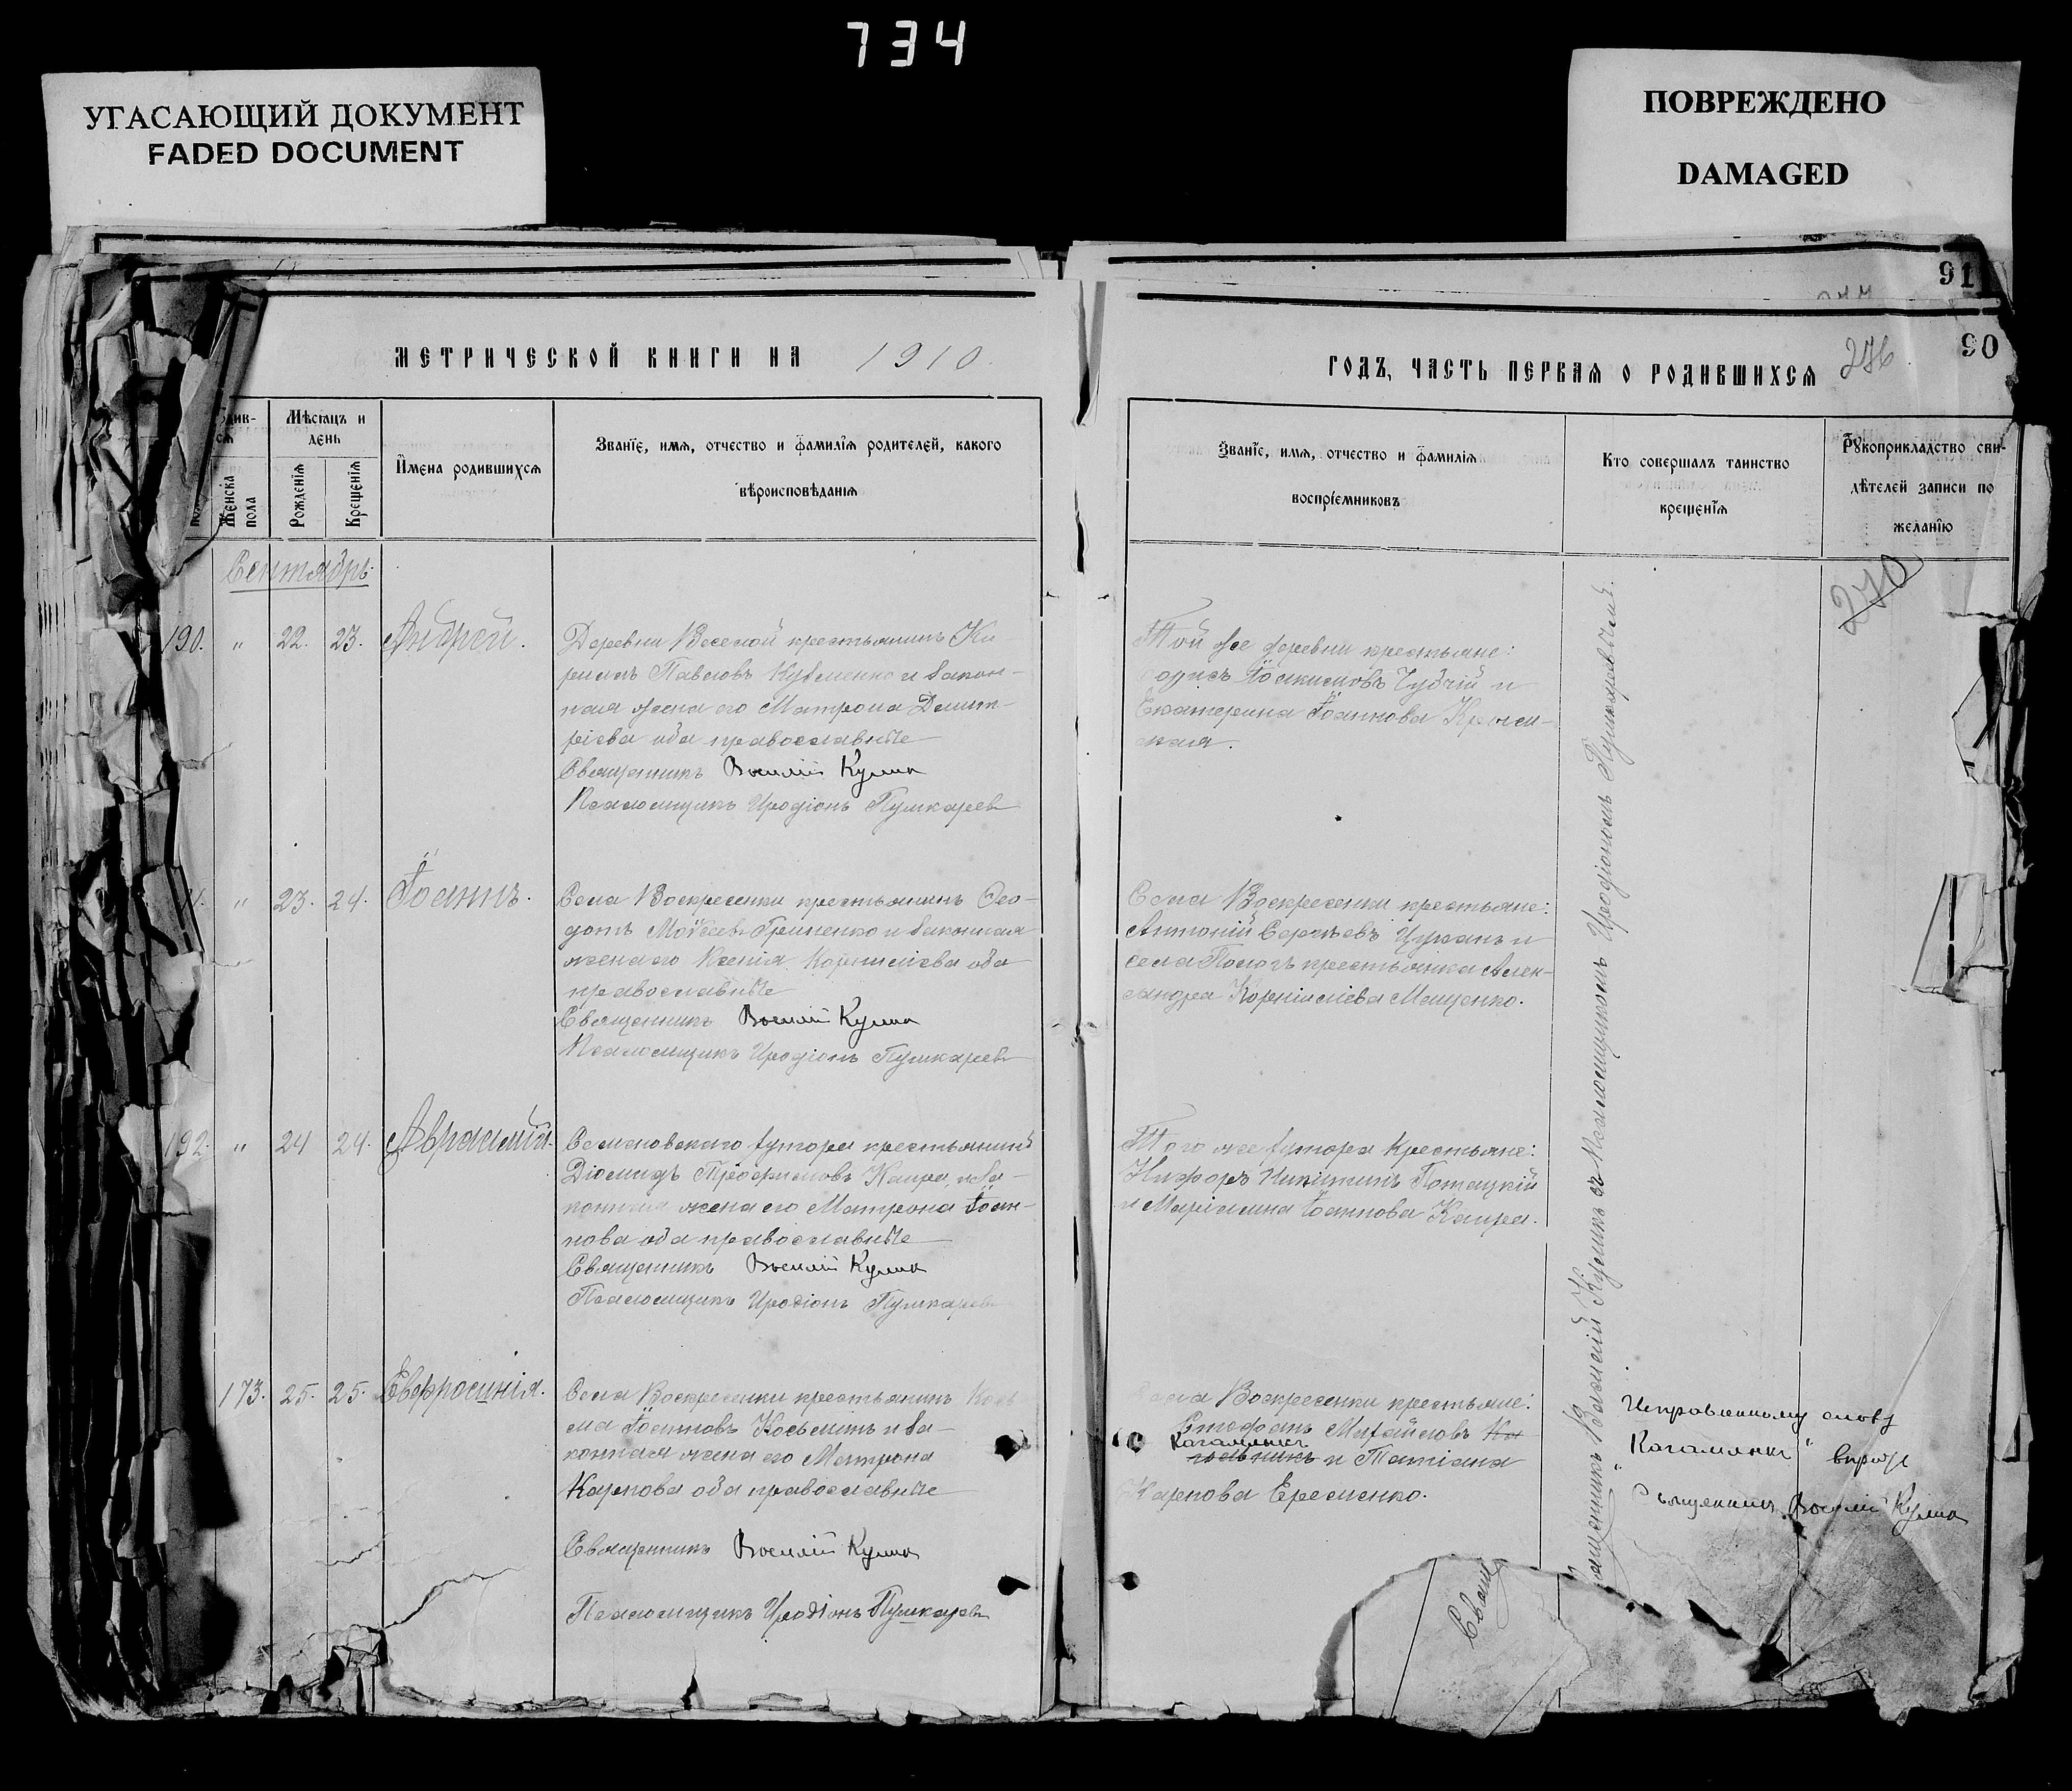 734
УГАСАЮЩИЙ ДОКУМЕНТ
FADED DOCUMENT
ПОВРЕЖДЕНО
DAMAGED
91
90
276
МЕТРИЧЕСКОЙ КНИГИ НА 1910
ГОДЪ, ЧАСТЬ ПЕРВАЯ О РОДИВШИХСЯ
Мѣсяцъ и
день
Женска
пола
Рожденїя
Крещенїя
Имена родившихся
Званїе, имя, отчество и фамилїя родителей, какого
вѣроисповѣданїя
Званїе, имя, отчество и фамилїя
воспрїемниковъ
Кто совершалъ таинство
крещенїя
Рукоприкладство сви-
дѣтелей записи по
желанїю
270
Сентябрь
190. " 22. 23. Андрей.
Деревни Веселой крестьянинъ Ки-
риллъ Павловъ Кузменко и закон-
ная жена его Матрона Димит-
ріева оба православные
Священникъ Василій Кулик
Псаломщикъ Иродіонъ Пушкаревъ
Той же деревни крестьяне:
Іоакимовъ Чубчій и
Екатерина Іоаннова Крым-
ская.
" 23. 24. Іоаннъ.
Села Воскресенки крестьянинъ Ѳео-
дотъ Моѵсеевъ Гриненко и законная
жена его Ксенія Корниліева оба
православные
Священникъ Василій Кулик
Псаломщикъ Иродіонъ Пушкаревъ
Села Воскресенки крестьяне:
Антоній Сергѣевъ Цуканъ и
села Пологъ крестьянка Алек-
сандра Корниліева Мащенко.
192. " 24 24. Авраамій.
Семеновскаго хутора крестьянинъ
Діомидъ Трофимовъ Каира и за-
конная жена его Матрона Іоан-
нова оба православные
Священникъ Василій Кулик
Псаломщикъ Иродіонъ Пушкаревъ
Того же хутора крестьяне:
Никифоръ Никитинъ Потацкій
и Маріамна Іоаннова Каира.
173. 25. 25. Евфросинія.
Села Воскресенки крестьянинъ Кось
ма Іоанновъ Косьминъ и за-
конная жена его Матрона
Карпова оба православные
Священникъ Василій Кулик
Псаломщикъ Иродіонъ Пушкаревъ
села Воскресенки крестьяне:
Стефанъ Михайловъ
и Татіана
Карпова Еременко.
Священникъ Василій Куликъ съ Псаломщикомъ Иродіономъ Пушкаревымъ.
Исправленному слову
вѣрить
Священникъ Василій Кулик
Свящ